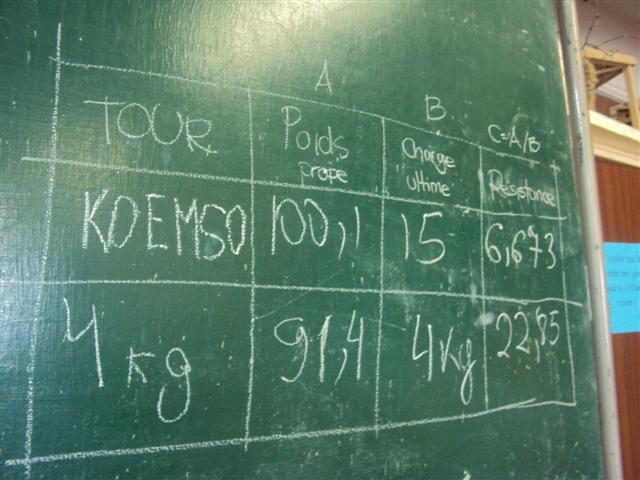 A
B
C=A/B
TOUR
Poids
prope
Charge
ultime
Resistance
KOEMSO
100,1
15
6,673
4kg
91,4
4kg
22,85